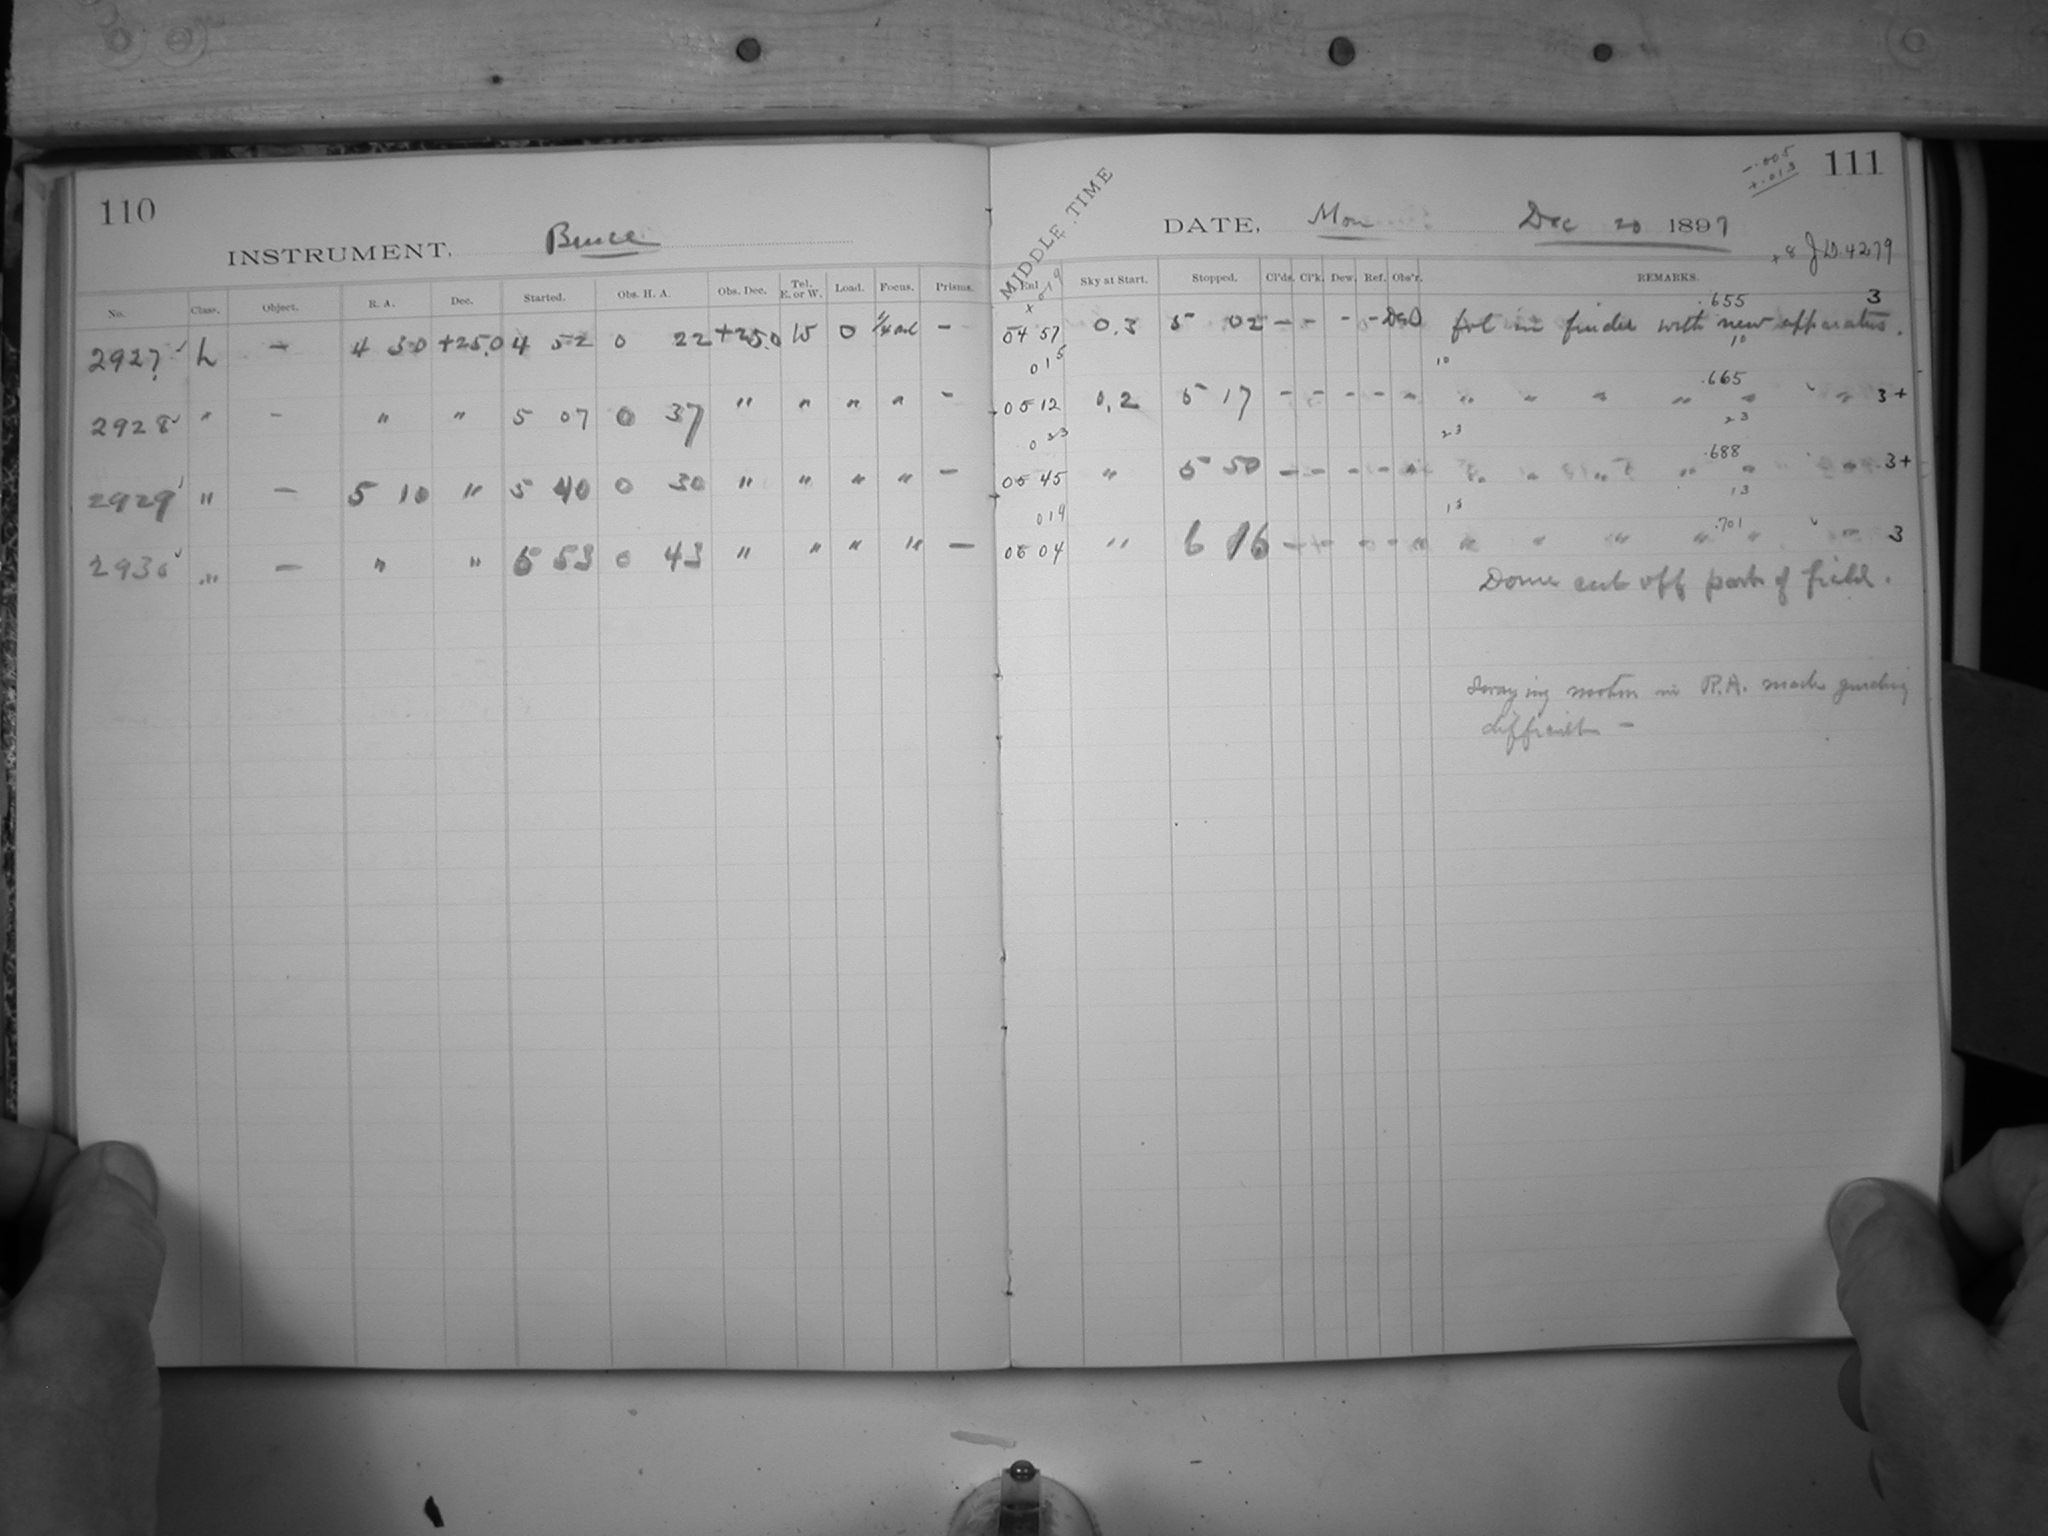 110
INSTRUMENT, Bruce
No. Class. Object. R. A. Dec. Started. Obs. H. A. Obs. Dec. Tel. E. or W. Load. Focus. Prisms.
2927 L — 4 30 +25.0 4 52 0 22 +25.0 W 0 —
2928 " - " " 5 07 0 37 " " " " -
2929 " — 5 10 " 5 40 0 30 " " " " —
2930 " — " " 5 53 0 43 " " " " —
111
-.005
+.013
MIDDLE TIME
DATE, Mon Dec 20 1897
+8 J.D. 4279
Sky at Start. Stopped. Cl'ds. Cl'k. Dew. Ref. Obs'r. REMARKS.
.655 3
04 57 0.3 5 02 - - - - fol in finder with new apparatus.
015 10 10
.665
05 12 0.2 5 17 - - - - " " " " " " " 3+
023 23 23
.688
05 45 " 5 50 - - - - " " " " " " " 3+
019 13 13
.701
06 04 " 6 16 - - - - " " " " " " " 3
Dome cut off part of field.
Swaying motion in R.A. made guiding
difficult —